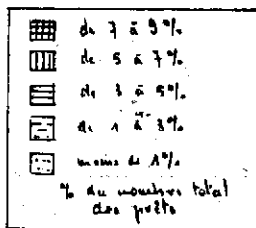 de 7 à 9%
de 5 à 7%
de 3 à 5%
de 1 à 3%
moins de 1%
% du nombre total
des prêts